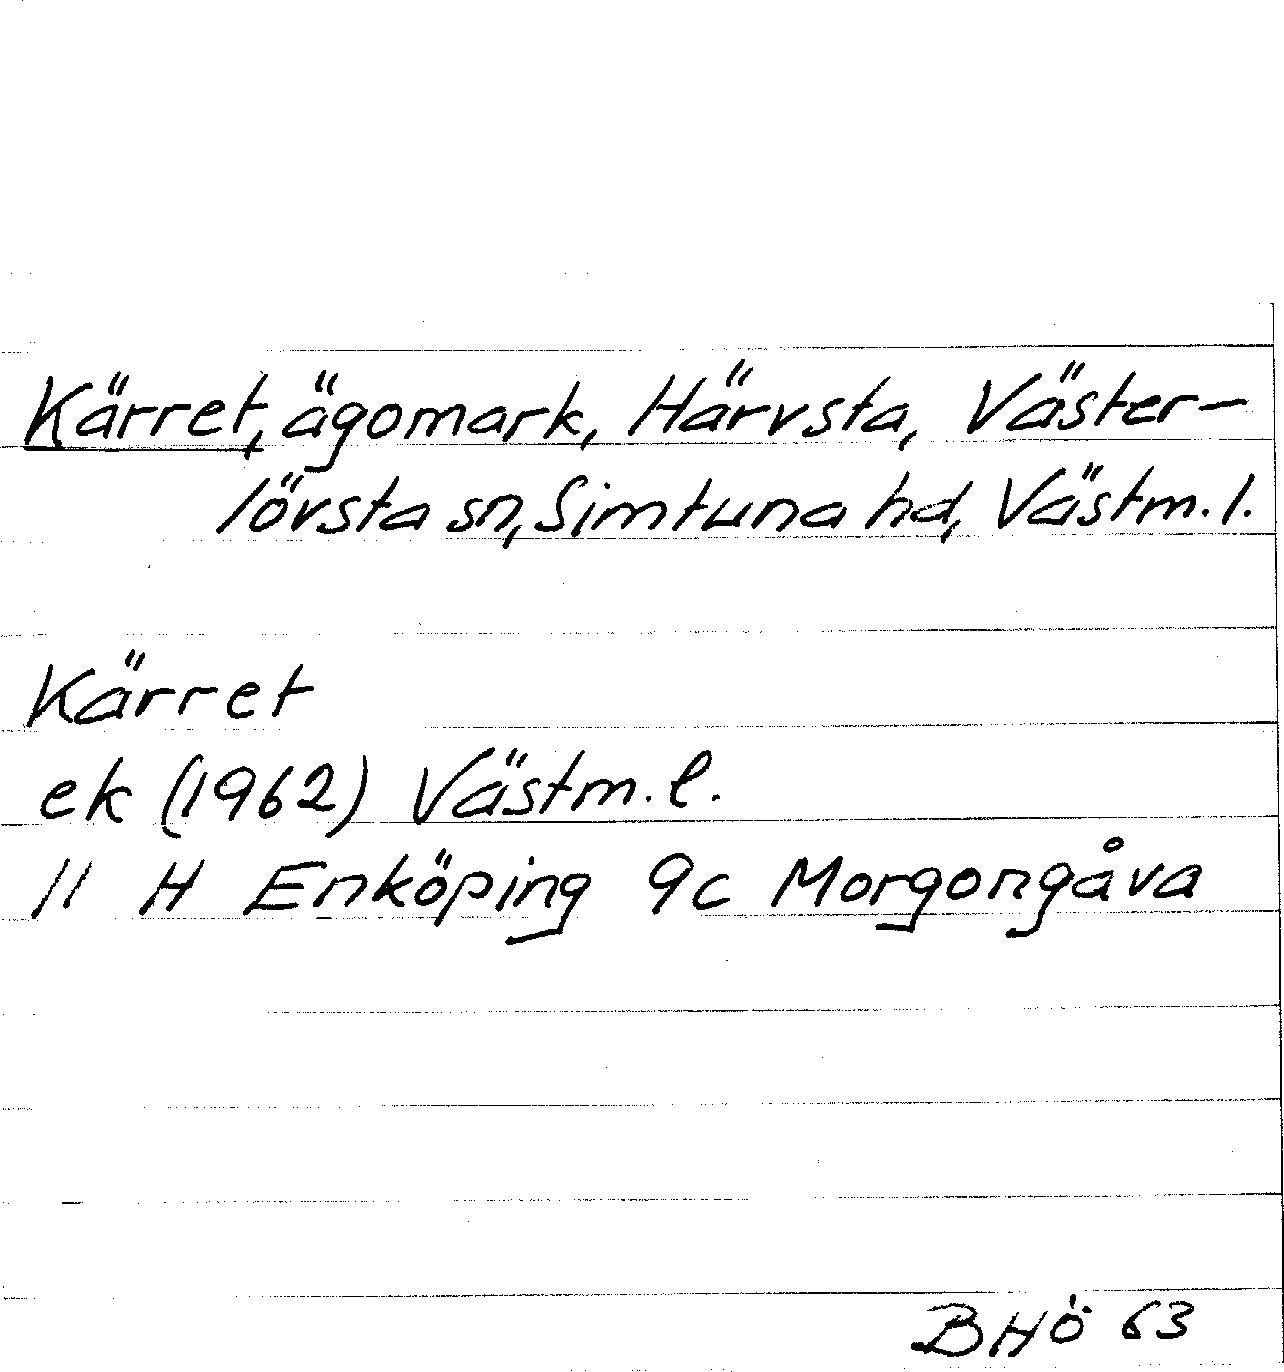 Kärret, ägomark, Härvsta, Väster-
lövsta sn, Simtuna hd, Västm. l.
Kärret
ek (1962) Västm. l.
11 H Enköping 9c Morgongåva
BHÖ 63